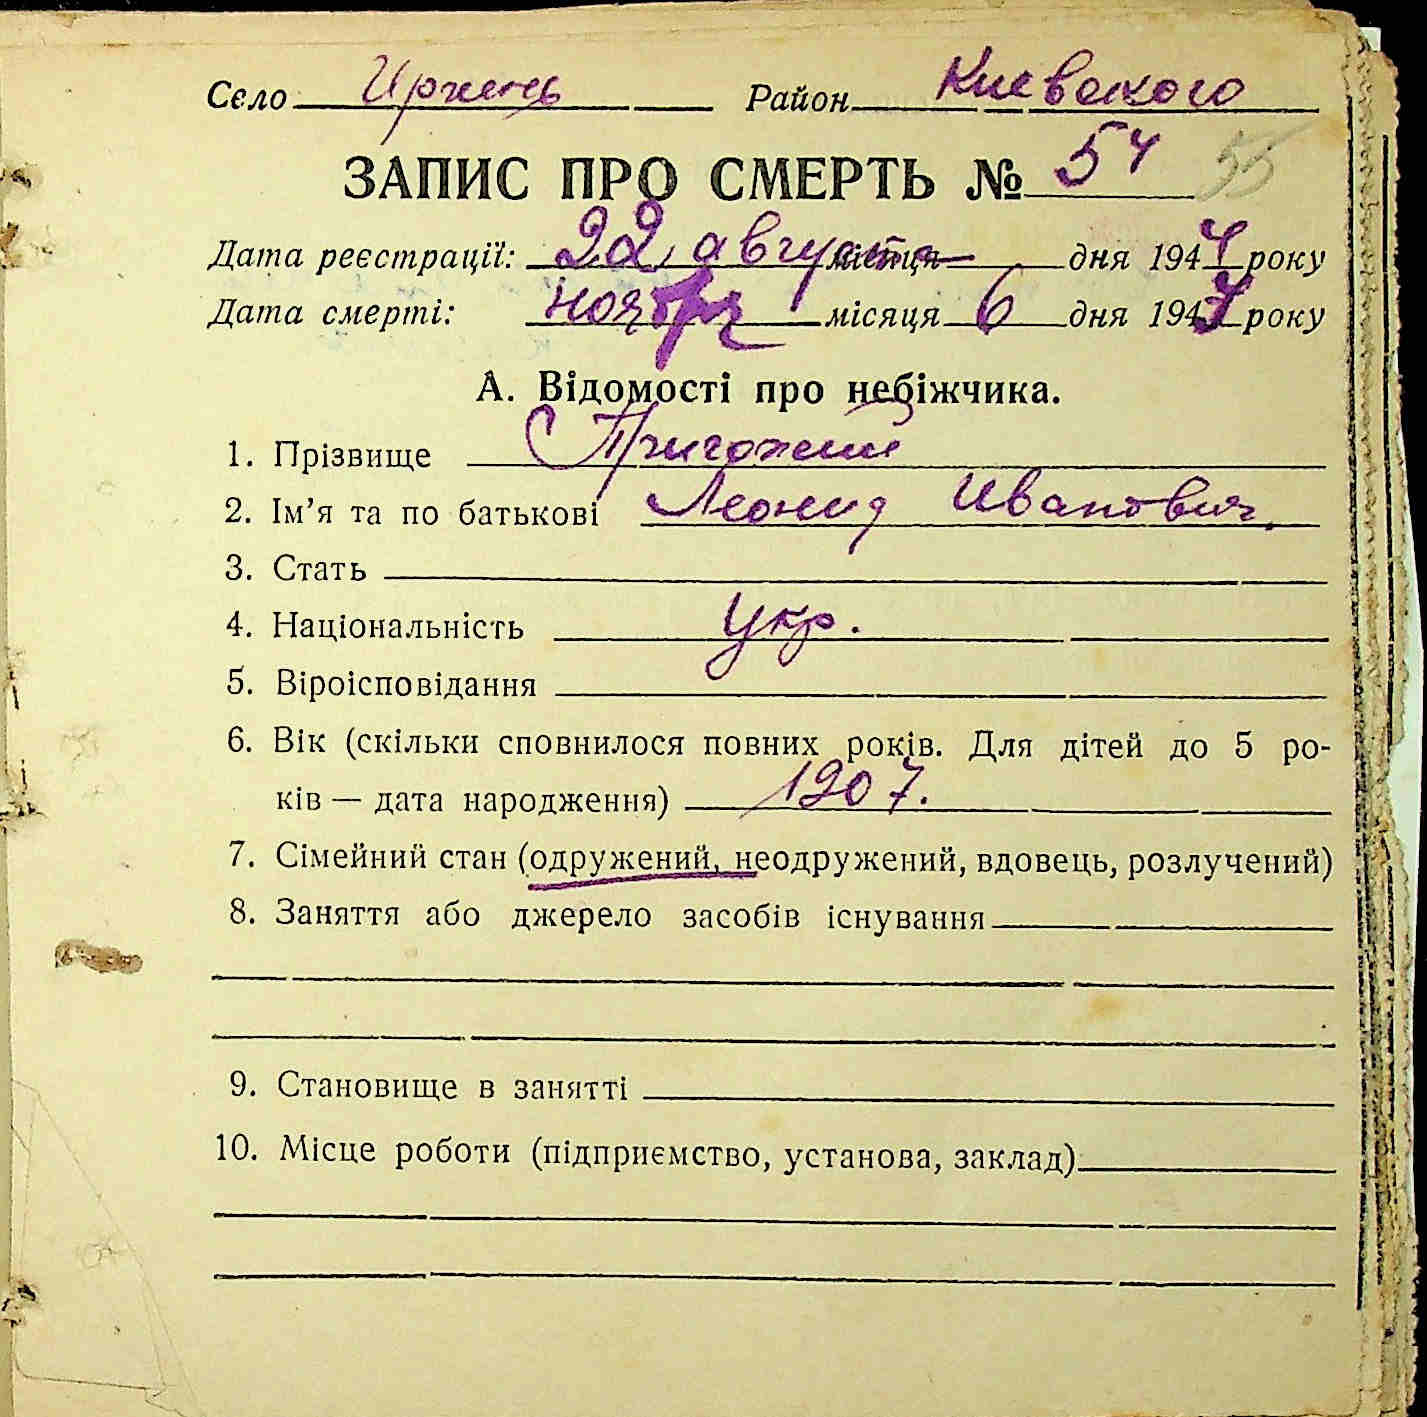 Село Ирпень Район Киевского
ЗАПИС ПРО СМЕРТЬ № 54 55
Дата реєстрації: 22 августа місяця дня 1944 року
Дата смерті: ноября місяця 6 дня 194 року
А. Відомості про небіжчика.
1. Прізвище Пригожий
2. Ім'я та по батькові Леонид Иванович.
3. Стать
4. Національність укр.
5. Віроісповідання
6. Вік (скільки сповнилося повних років. Для дітей до 5 ро-
ків — дата народження) 1907.
7. Сімейний стан (одружений, неодружений, вдовець, розлучений)
8. Заняття або джерело засобів існування
9. Становище в занятті
10. Місце роботи (підприємство, установа, заклад)